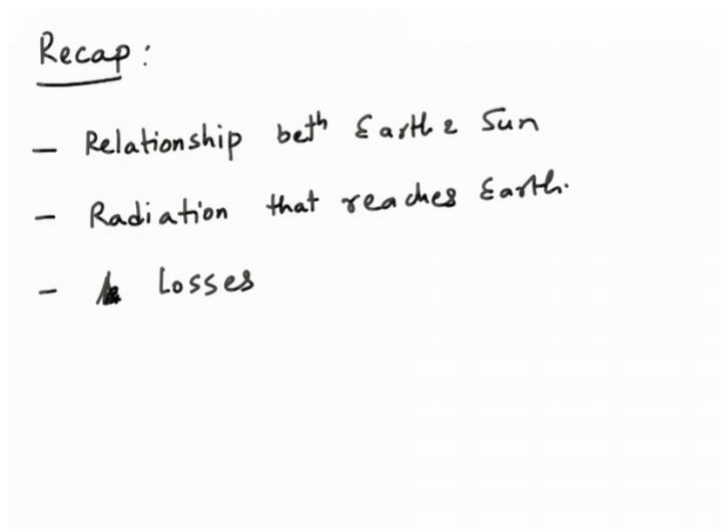 Recap:
– Relationship betⁿ Earth & Sun
– Radiation that reaches Earth.
– Losses